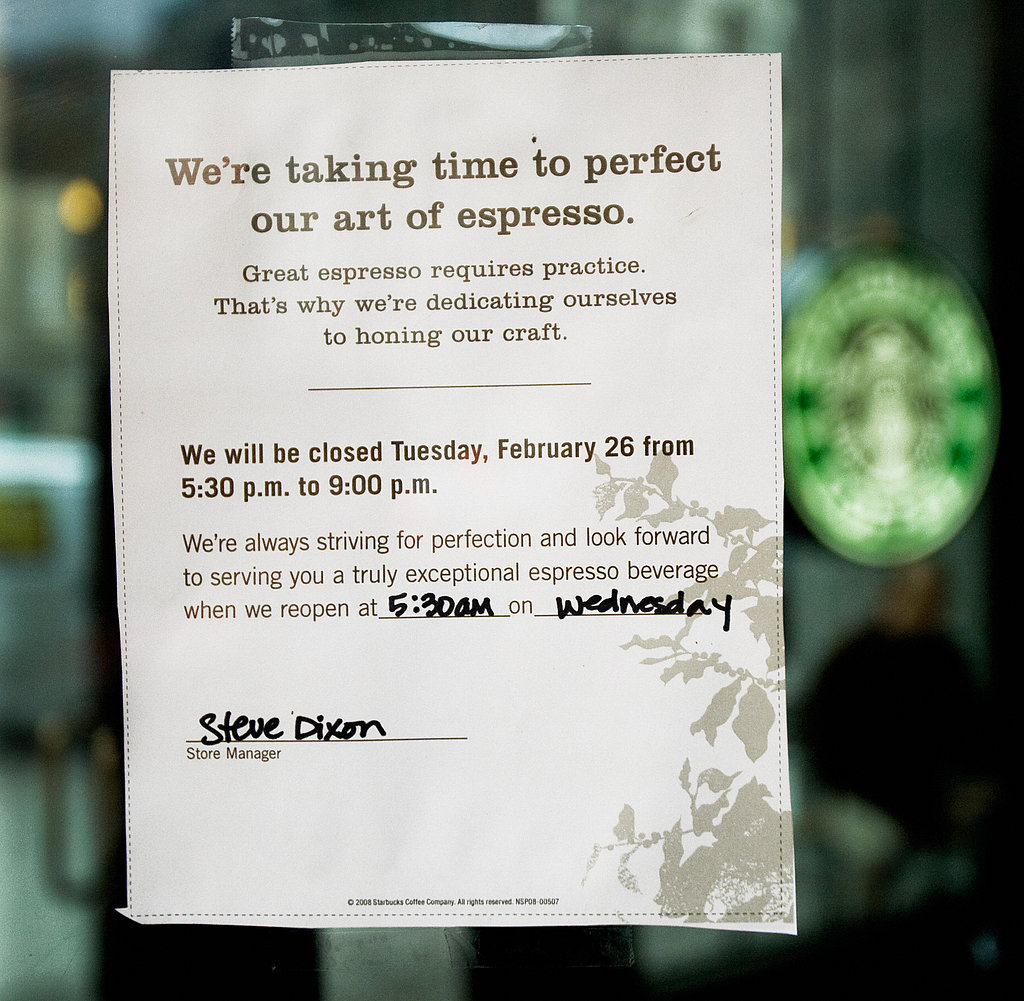 We're taking time to perfect
our art of espresso.
Great espresso requires practice.
That's why we're dedicating ourselves
to honing our craft.
We will be closed Tuesday, February 26 from
5:30 p.m. to 9:00 p.m.
We're always striving for perfection and look forward
to serving you a truly exceptional espresso beverage
when we reopen at 5:30am on Wednesday
Steve Dixon
Store Manager
© 2008 Starbucks Coffee Company. All rights reserved. NSP08-00507